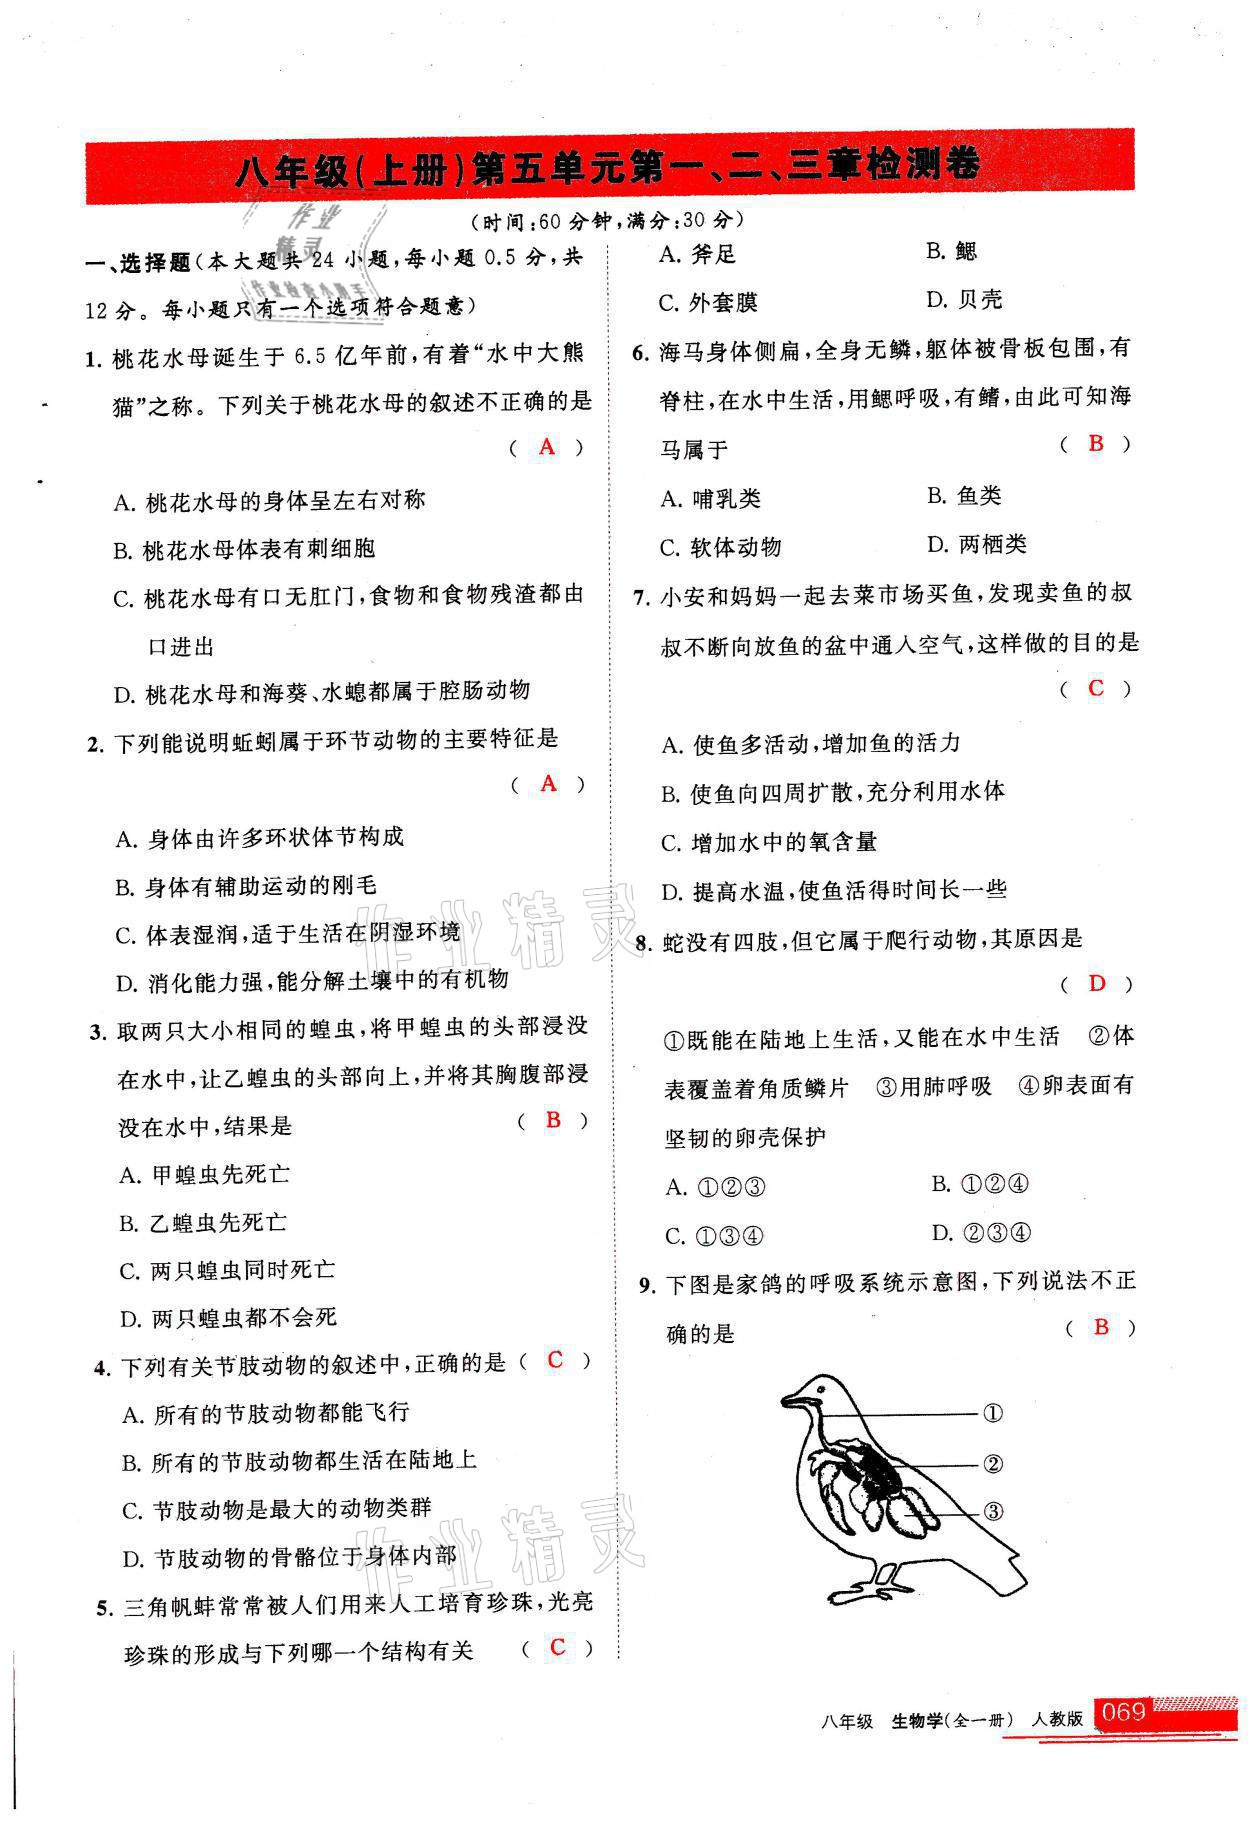 八年级(上册)第五单元第一、二、三章检测卷
(时间:60分钟,满分:30分)
一、选择题(本大题共24小题,每小题0.5分,共
12分。每小题只有一个选项符合题意)
1. 桃花水母诞生于6.5亿年前,有着“水中大熊
猫”之称。下列关于桃花水母的叙述不正确的是
( A )
A. 桃花水母的身体呈左右对称
B. 桃花水母体表有刺细胞
C. 桃花水母有口无肛门,食物和食物残渣都由
口进出
D. 桃花水母和海葵、水螅都属于腔肠动物
2. 下列能说明蚯蚓属于环节动物的主要特征是
( A )
A. 身体由许多环状体节构成
B. 身体有辅助运动的刚毛
C. 体表湿润,适于生活在阴湿环境
D. 消化能力强,能分解土壤中的有机物
3. 取两只大小相同的蝗虫,将甲蝗虫的头部浸没
在水中,让乙蝗虫的头部向上,并将其胸腹部浸
没在水中,结果是 ( B )
A. 甲蝗虫先死亡
B. 乙蝗虫先死亡
C. 两只蝗虫同时死亡
D. 两只蝗虫都不会死
4. 下列有关节肢动物的叙述中,正确的是( C )
A. 所有的节肢动物都能飞行
B. 所有的节肢动物都生活在陆地上
C. 节肢动物是最大的动物类群
D. 节肢动物的骨骼位于身体内部
5. 三角帆蚌常常被人们用来人工培育珍珠,光亮
珍珠的形成与下列哪一个结构有关 ( C )
A. 斧足 B. 鳃
C. 外套膜 D. 贝壳
6. 海马身体侧扁,全身无鳞,躯体被骨板包围,有
脊柱,在水中生活,用鳃呼吸,有鳍,由此可知海
马属于 ( B )
A. 哺乳类 B. 鱼类
C. 软体动物 D. 两栖类
7. 小安和妈妈一起去菜市场买鱼,发现卖鱼的叔
叔不断向放鱼的盆中通入空气,这样做的目的是
( C )
A. 使鱼多活动,增加鱼的活力
B. 使鱼向四周扩散,充分利用水体
C. 增加水中的氧含量
D. 提高水温,使鱼活得时间长一些
8. 蛇没有四肢,但它属于爬行动物,其原因是
( D )
①既能在陆地上生活,又能在水中生活 ②体
表覆盖着角质鳞片 ③用肺呼吸 ④卵表面有
坚韧的卵壳保护
A. ①②③ B. ①②④
C. ①③④ D. ②③④
9. 下图是家鸽的呼吸系统示意图,下列说法不正
确的是 ( B )
①
②
③
八年级 生物学(全一册) 人教版 069
作业
精灵
作业检查小助手
作业精灵
作业精灵